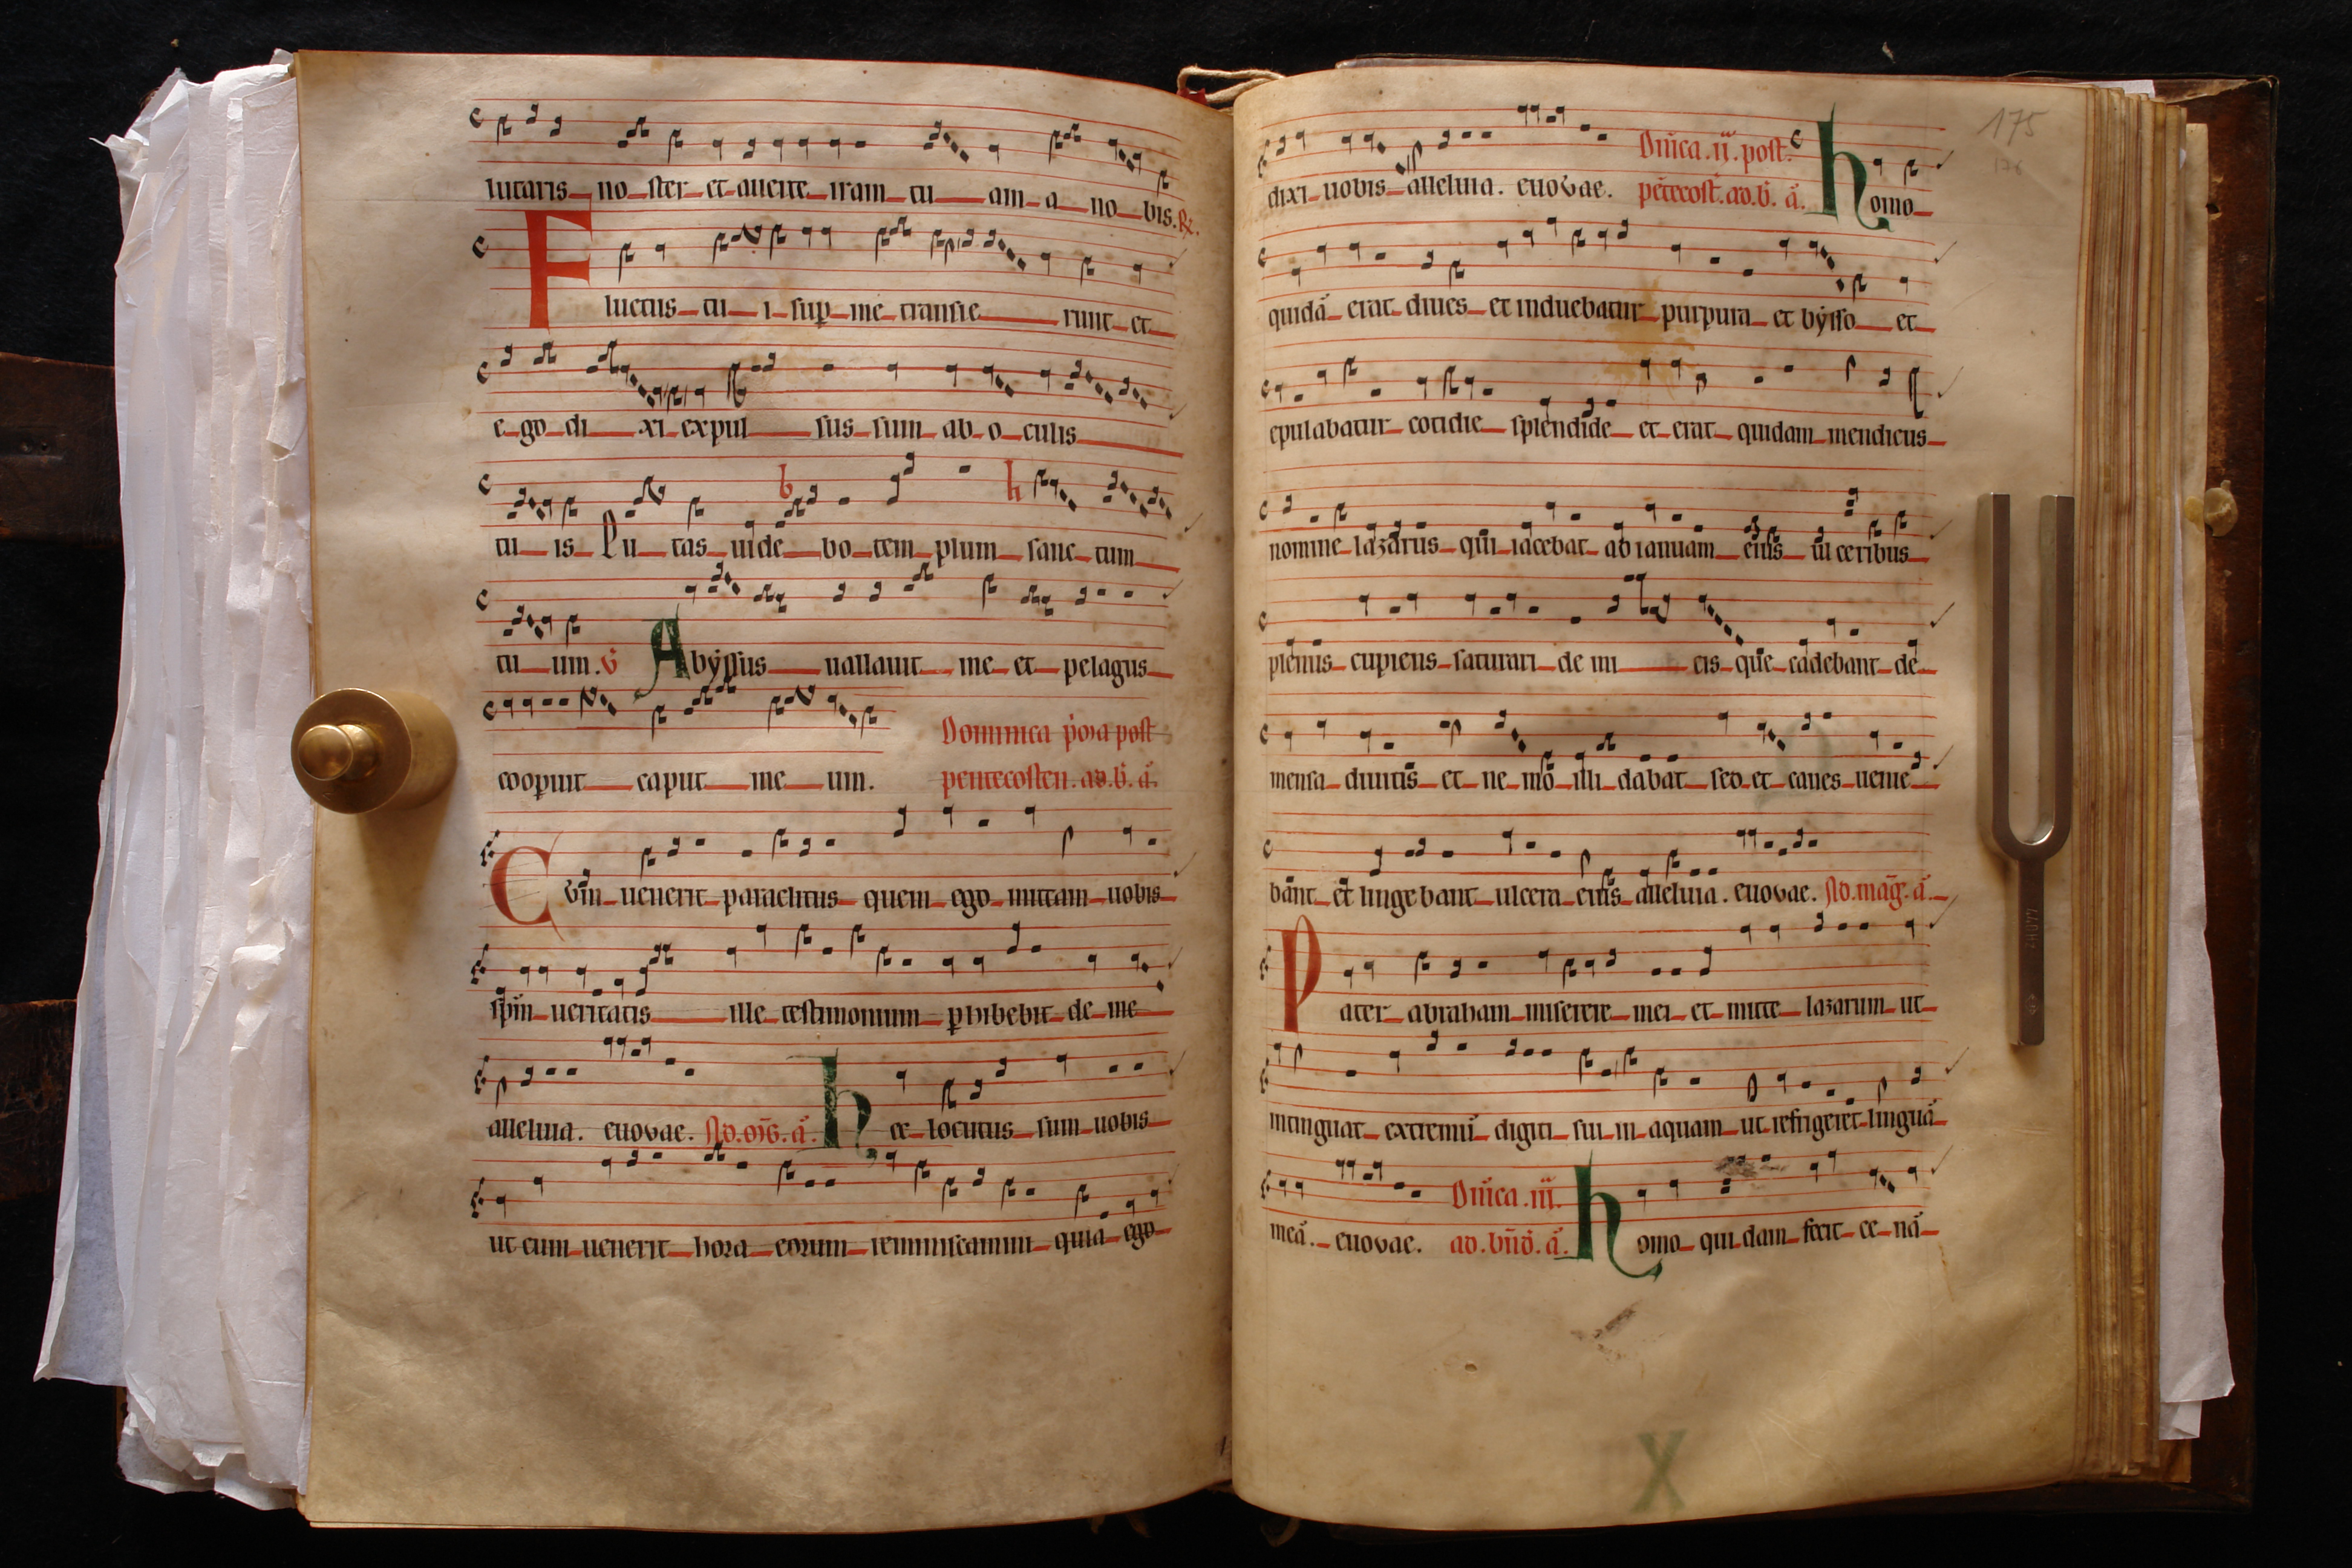 lutaris no ster et auerte iram tu am a no bis. R.
Fluctus tu i sup me transie runt et
e go di xi expul sus sum ab o culis
tu is Pu tas uide bo tem plum sanc tum
tu um. V Abyssus uallauit me et pelagus
Dominica p'ma post
coopuit caput me um. pentecosten. ad. b. a.
Cvm uenerit paraclitus quem ego mittam uobis
spm ueritatis ille testimonium phibebit de me
alleluia. euovae. hec locutus sum uobis
ut cum uenerit hora eorum reminiscamini quia ego
175
176
Dnica .ii. post
dixi uobis alleluia. euovae. petecost. ad. b. a. homo
quida erat diues et induebatur purpura et bysso et
epulabatur cotidie splendide et erat quidam mendicus
nomine lazarus qui iacebat ad ianuam eius ul ceribus
plenus cupiens saturari de mi cis que cadebant de
mensa diuitis et ne mo illi dabat sed et canes uenie
bant et linge bant ulcera eius alleluia. euovae. Ad. mag. a.
Pater abraham miserere mei et mitte lazarum ut
intinguat extremu digiti sui in aquam ut refrigeret lingua
Dnica .iii.
mea. euovae. ad. bnd. a. homo qui dam fecit ce na
X
440HZ